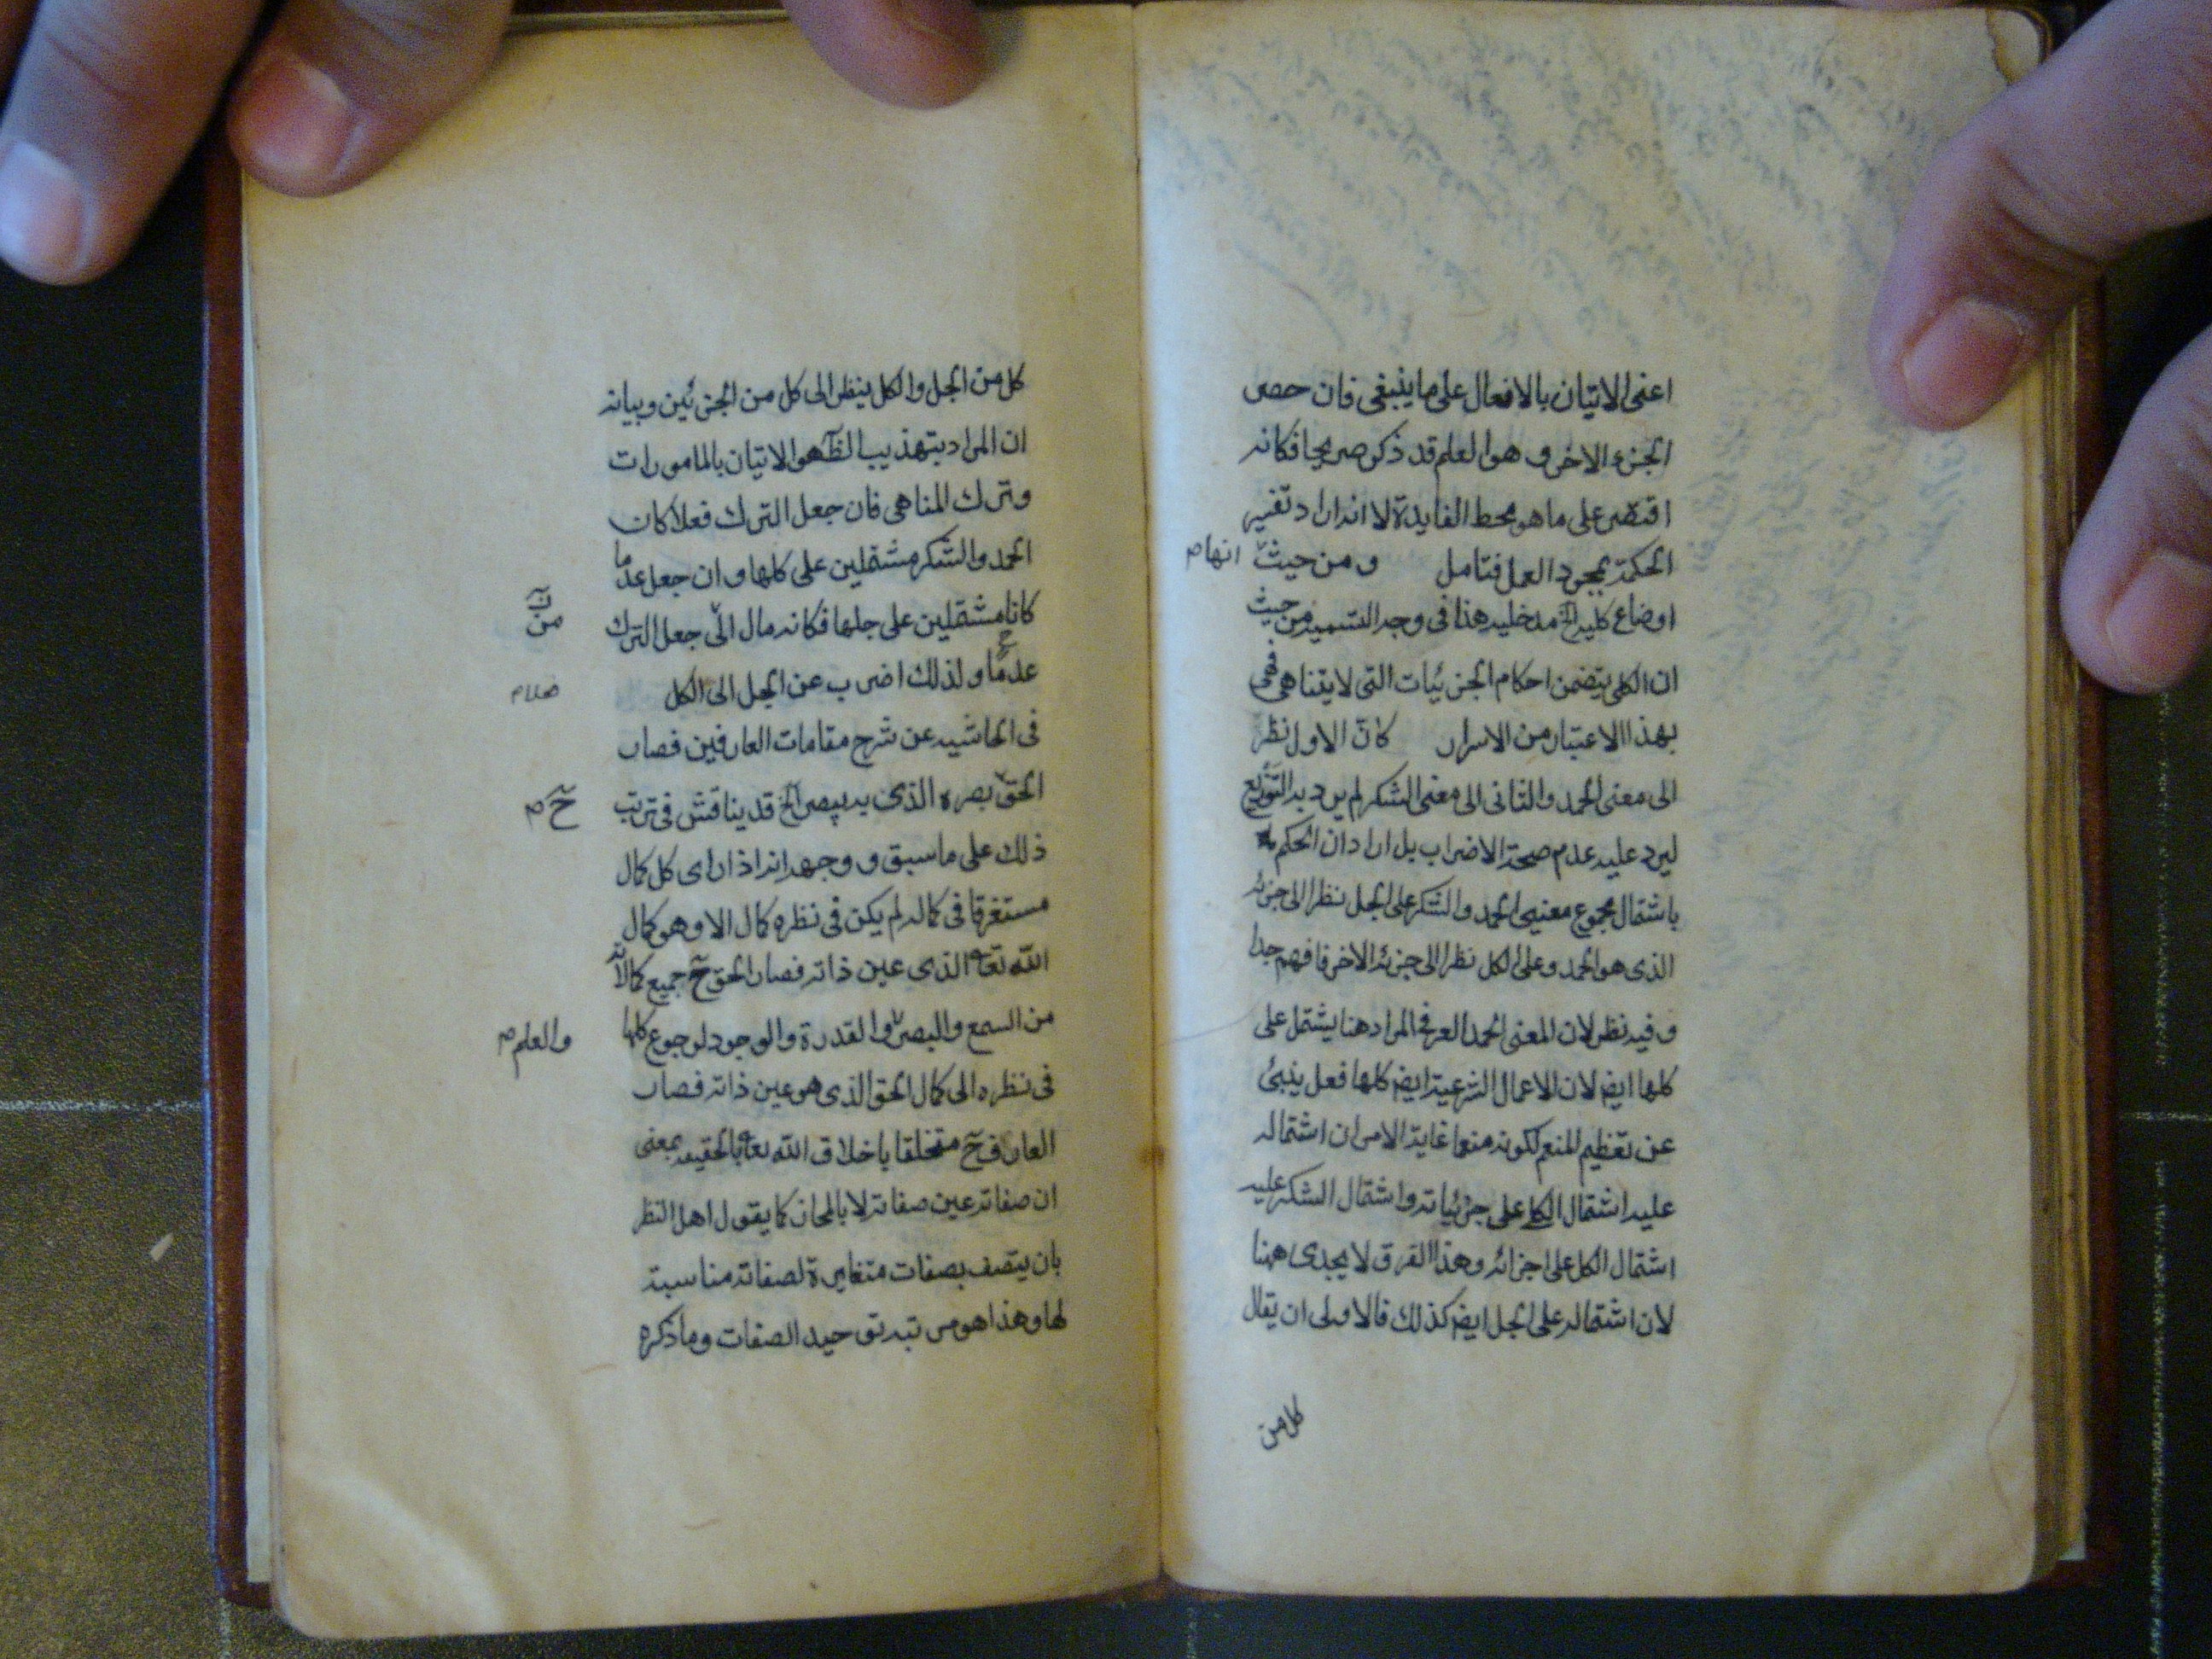 اعنى الاتيان بالافعال على ما ينبغى فان حصر
الجزء الاخر و هو العلم قد ذكر صريحا فكانه
اقتصر على ما هو محط الفايدة لا انه اراد تفسير
الحكمة بمجرد العمل فتامل و من حيث انها م
اوضاع كليه الخ مدخليه هذا فى وجه التسميه من حيث
ان الكلى يتضمن احكام الجزئيات التى لا يتناهى فهى
بهذا الاعتبار من الاسرار كان الاول نظر
الى معنى الحمد والثانى الى معنى الشكر لم يرد به التوزيع
ليرد عليه عدم صحة الاضراب بل اراد ان الحكم
باشتمال مجموع معنيى الحمد والشكر على الجل نظرا الى جزئه
الذى هو الحمد وعلى الكل نظرا الى جزئه الاخر فافهم جدا
و فيه نظر لان المعنى الحمد العرفى المراد هنا يشتمل على
كلها ايض لان الاعمال الشرعية ايض كلها فعل ينبئ
عن تعظيم المنعم لكونه منعما غاية الامر ان اشتماله
عليه اشتمال الكلى على جزئياته واشتمال الشكر عليه
اشتمال الكل على اجزائه وهذا الفرق لا يجدى ههنا
لان اشتماله على الجل ايض كذلك فالاولى ان يقال
كل من
كل من الجل والكل ينظر الى كل من الجزئين وبيانه
ان المراد بتهذيب الظاهر هو الاتيان بالمامورات
وترك المناهى فان جعل الترك فعلا كان
الحمد والشكر مشتملين على كلها وان جعل عدما
كانا مشتملين على جلها فكانه مال الى جعل الترك
عدما ولذلك اضرب عن الجل الى الكل
فى الحاشيه عن شرح مقامات العارفين فصار
الحق بصره الذى به يبصر الخ قد يناقش فى ترتب ح م
ذلك على ما سبق و وجهه انه اذا راى كل كمال
مستغرقا فى كماله لم يكن فى نظره كمال الا وهو كمال
الله تعا الذى عين ذاته فصار الحق ح جميع كمالاته
من السمع والبصر والقدرة والوجود لرجوع كلها والعلم م
فى نظره الى كمال الحق الذى هو عين ذاته فصار
العارف ح متخلقا باخلاق الله تعا بالحقيقه بمعنى
ان صفاته عين صفاته لا بالمجاز كما يقول اهل النظر
بان يتصف بصفات متغايرة لصفاته مناسبة
لها وهذا هو مرتبة توحيد الصفات وما ذكره